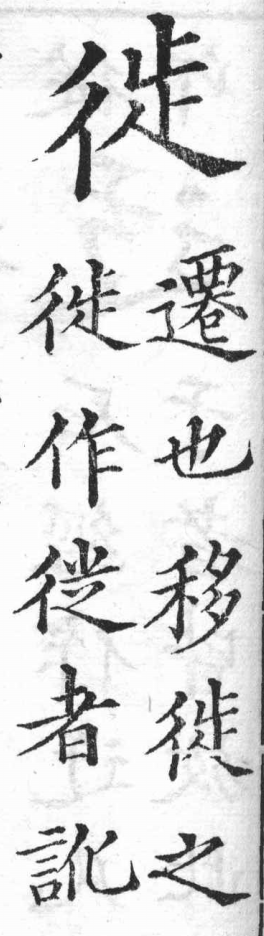 徙
遷也移徙之
徙作徔者訛